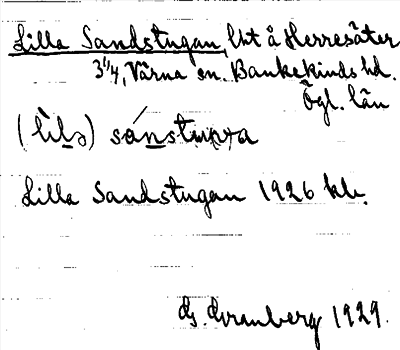 Lilla Sandstugan, lht å Herresäter
3 1/4, Värna sn. Bankekinds hd.
Ögl. län
Lilla Sandstugan 1926 kb.
G. Granberg 1929.